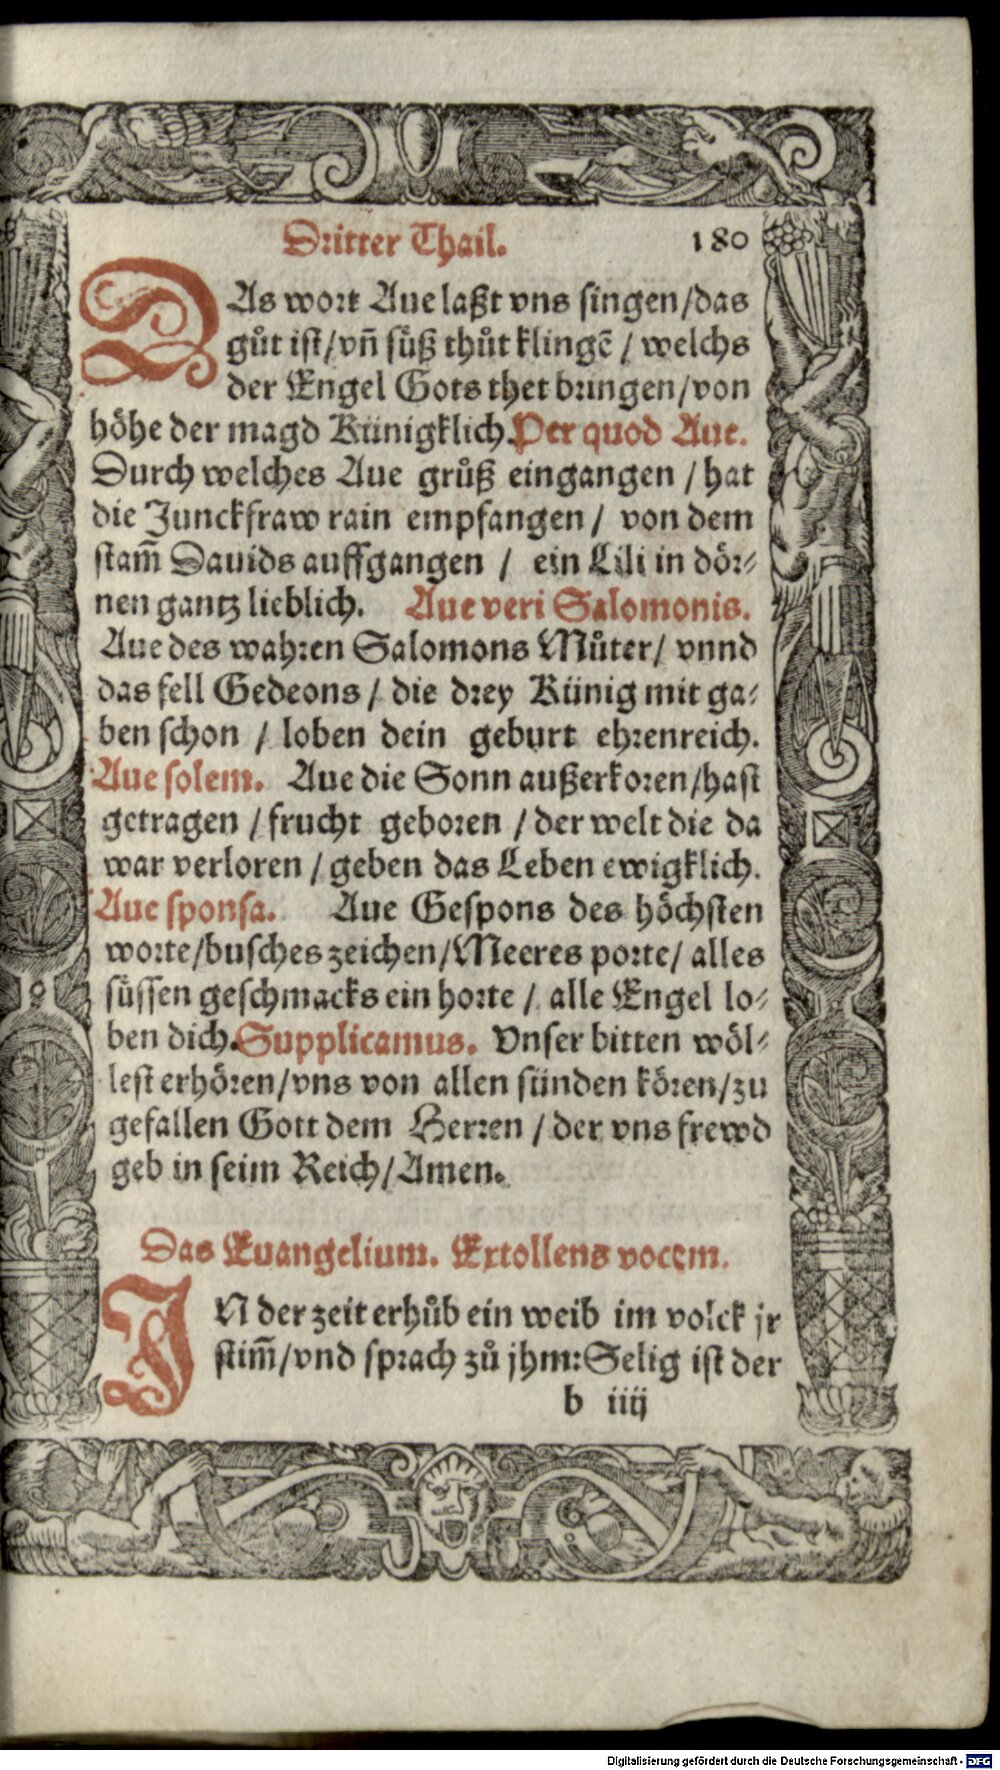 Dritter Thail. 180
DAs wort Aue laßt vns singen/das
gůt ist/vñ sůß thůt klingẽ / welchs
der Engel Gots thet bringen/von
höhe der magd Künigklich. Per quod Aue.
Durch welches Aue grůß eingangen / hat
die Junckfraw rain empfangen / von dem
stam̃ Dauids auffgangen / ein Lili in dör-
nen gantz lieblich. Aue veri Salomonis.
Aue des wahren Salomons Můter/ vnnd
das fell Gedeons / die drey Künig mit ga-
ben schon / loben dein geburt ehrenreich.
Aue solem. Aue die Sonn außerkoren/hast
getragen / frucht geboren / der welt die da
war verloren / geben das Leben ewigklich.
Aue sponsa. Aue Gespons des höchsten
worte/busches zeichen/Meeres porte/ alles
sůssen geschmacks ein horte / alle Engel lo-
ben dich. Supplicamus. Vnser bitten wöl-
lest erhören/vns von allen sünden kören/zu
gefallen Gott dem Herren / der vns frewd
geb in seim Reich/Amen.
Das Euangelium. Extollens vocem.
IN der zeit erhůb ein weib im volck jr
stim̃/vnd sprach zů jhm: Selig ist der
b iiij
Digitalisierung gefördert durch die Deutsche Forschungsgemeinschaft - DFG